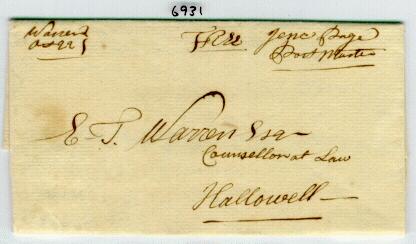 6931
Warren
Free
Page
Post Master
E. T. Warren Esqr
Counsellor at Law
Hallowell